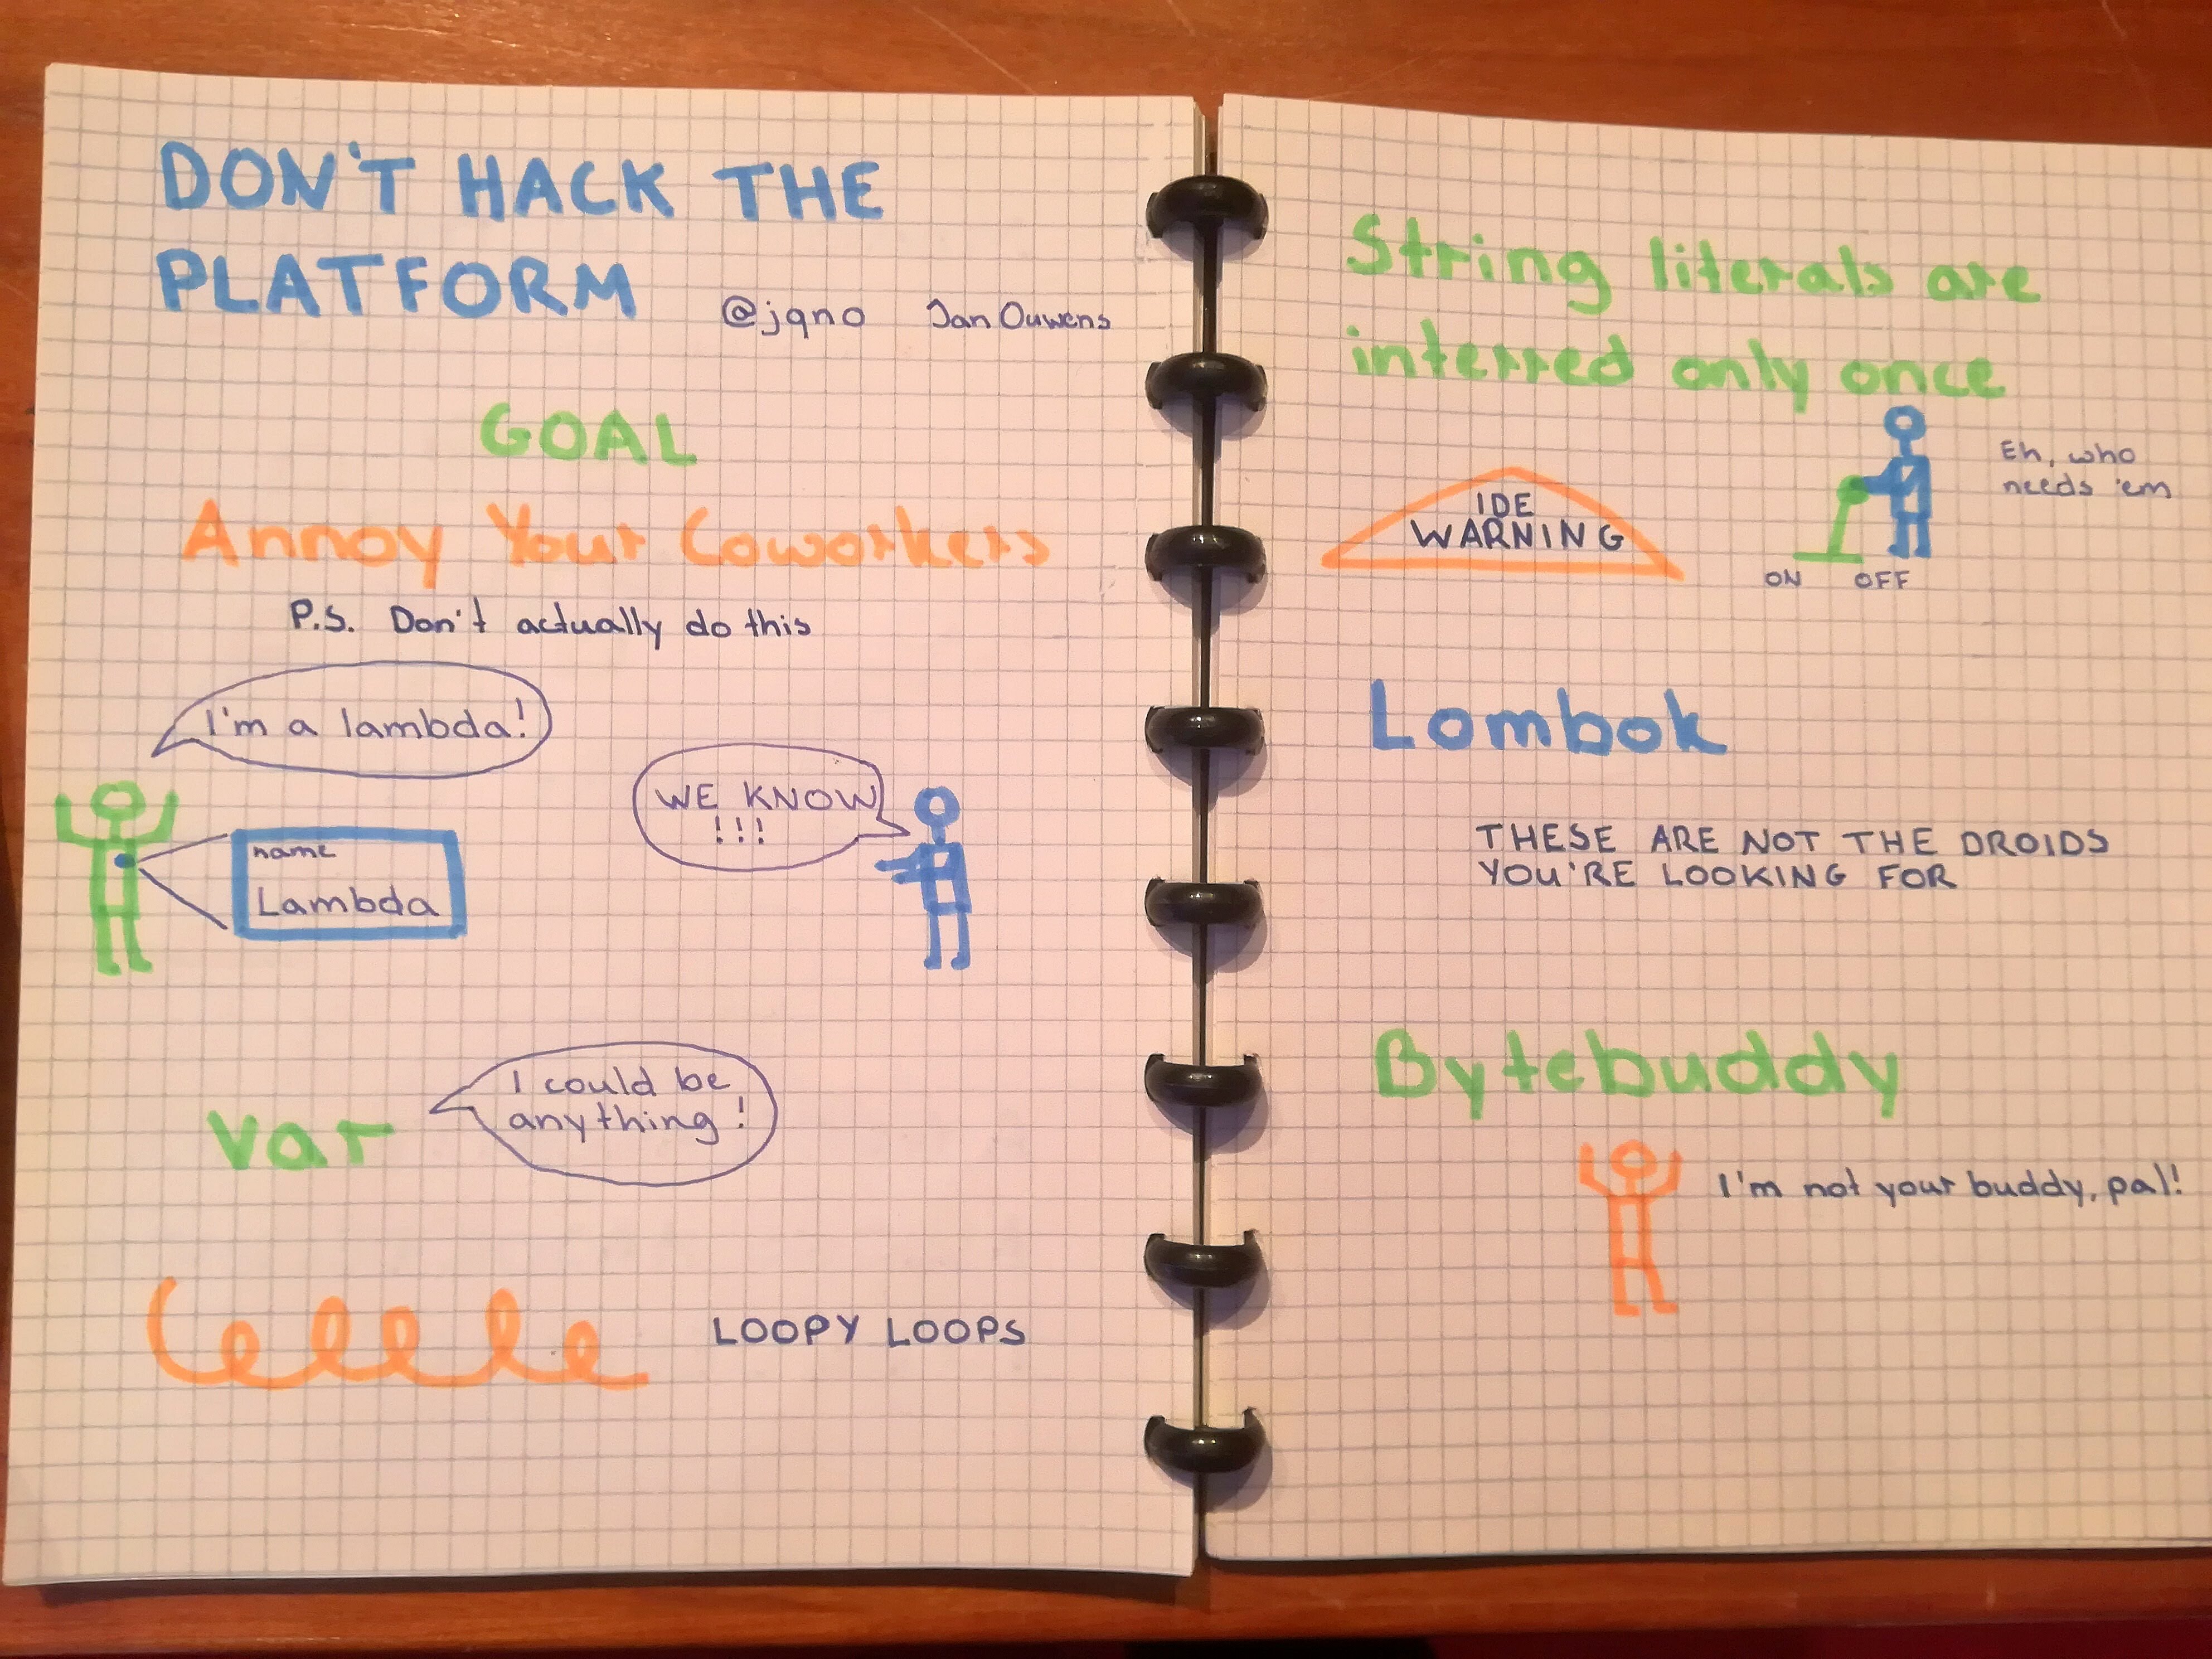 DON'T HACK THE
PLATFORM
@jqno Jan Ouwens
GOAL
Annoy Your Coworkers
P.S. Don't actually do this
I'm a lambda!
WE KNOW
!!!
name
Lambda
var
I could be
anything!
LOOPY LOOPS
String literals are
interred only once
IDE
WARNING
Eh, who
needs 'em
ON OFF
Lombok
THESE ARE NOT THE DROIDS
YOU'RE LOOKING FOR
Bytebuddy
I'm not your buddy, pal!